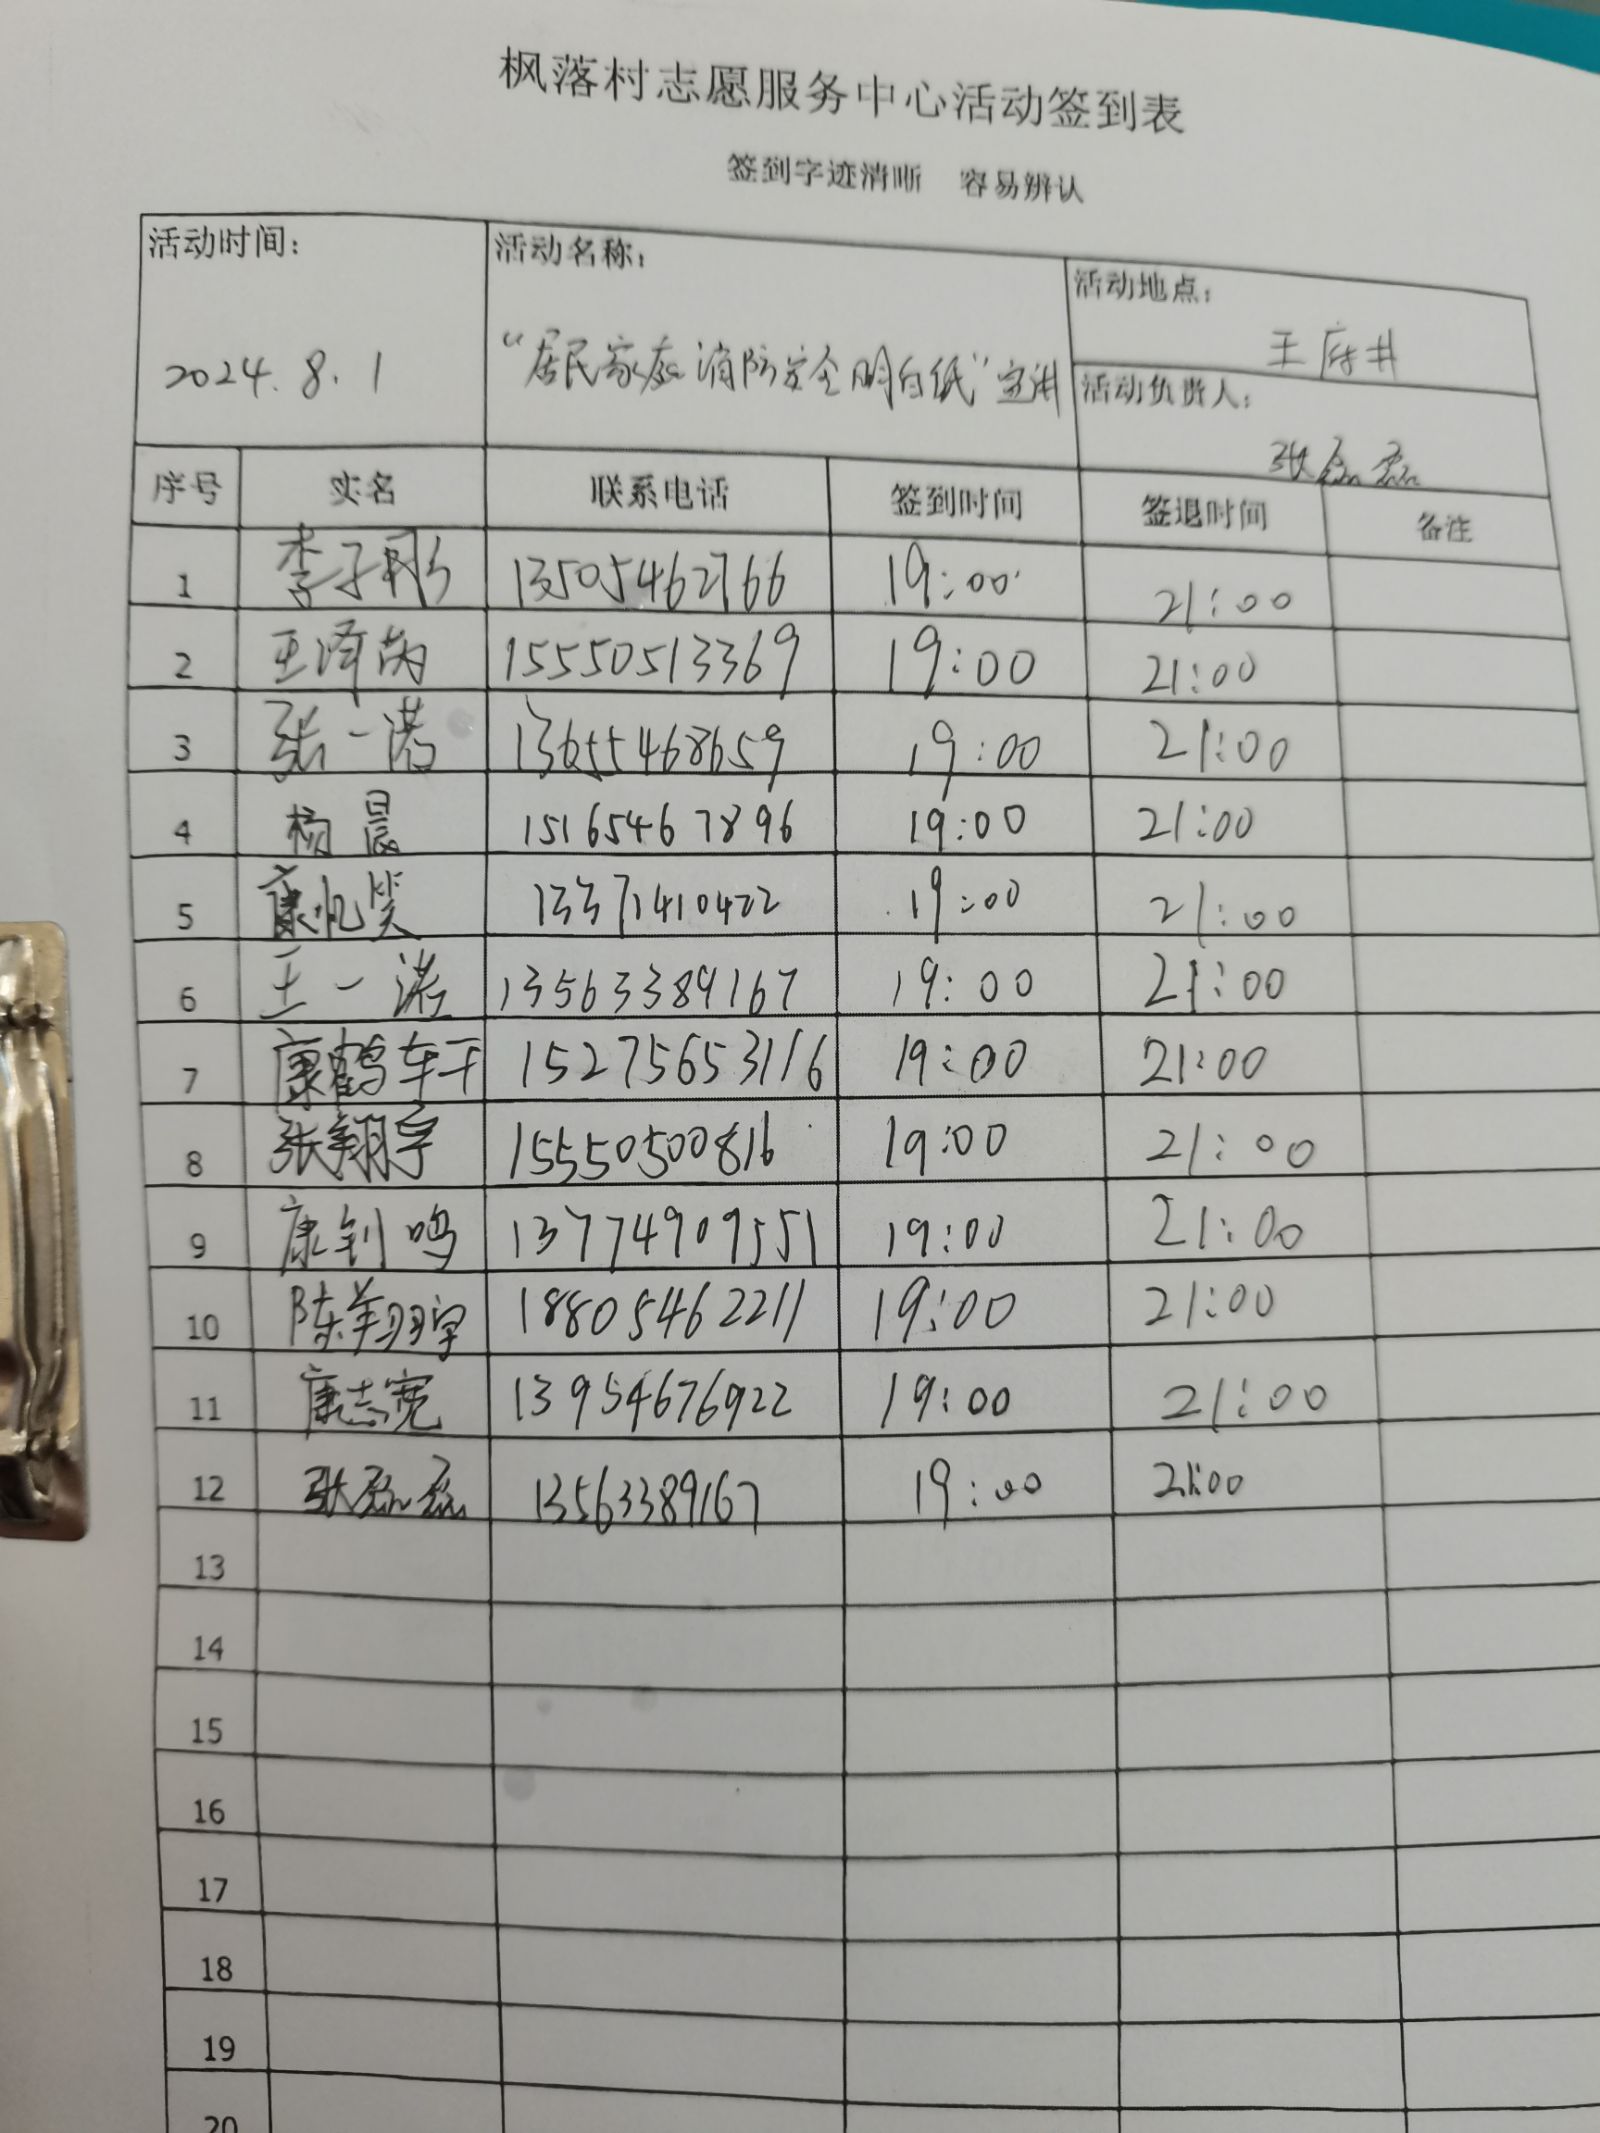 枫落村志愿服务中心活动签到表
签到字迹清晰 容易辨认
活动时间： 活动名称： 活动地点：
2024.8.1 “居民家庭消防安全明白纸”宣讲 王府井
活动负责人：
张磊磊
序号 实名 联系电话 签到时间 签退时间 备注
1 李子刚 13505462766 19:00 21:00
2 王泽 15550513369 19:00 21:00
3 张一诺 13655468659 19:00 21:00
4 杨晨 15165467896 19:00 21:00
5 康忆笑 13371410422 19:00 21:00
6 王一诺 13563389167 19:00 21:00
7 康鹤轩 15275653116 19:00 21:00
8 张翔宇 15550500816 19:00 21:00
9 康钊鸣 13774909551 19:00 21:00
10 陈翔宇 18805462211 19:00 21:00
11 康志宽 13954676922 19:00 21:00
12 张磊磊 13563389167 19:00 21:00
13
14
15
16
17
18
19
20